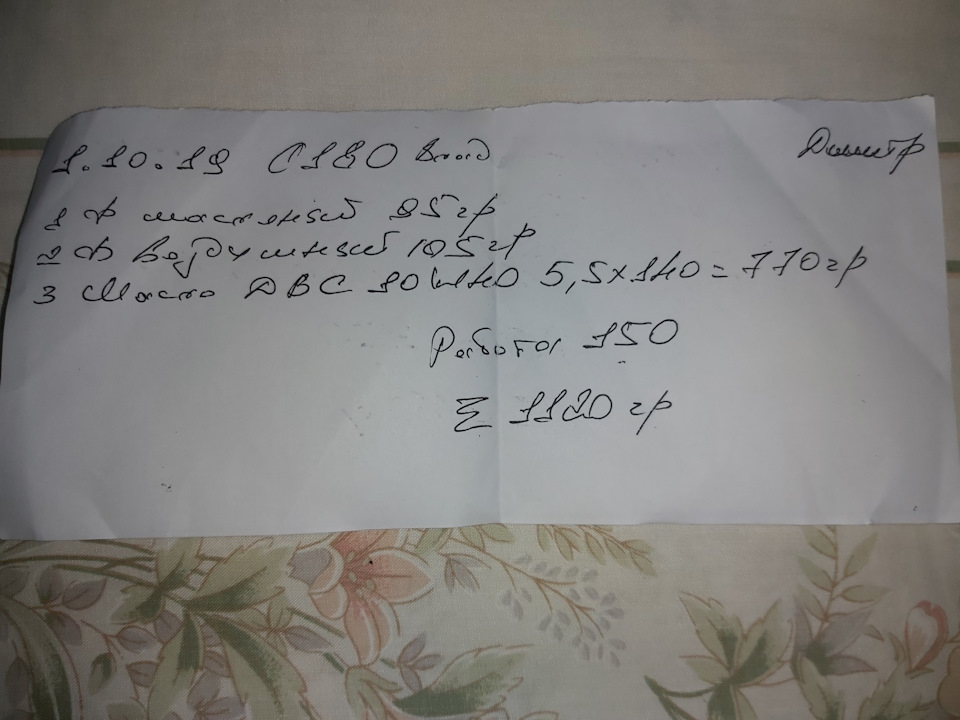 1.10.19 C180 Димитр
1 Ф масляный 95 гр
2 Ф Воздушный 105 гр
3 Масло ДВС 10W40 5,5x140 = 770 гр
Работа 150
Σ 1120 гр